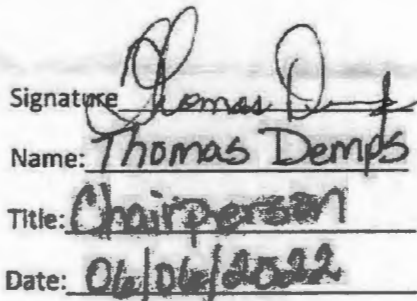 Signature Thomas Demps
Name: Thomas Demps
Title: Chairperson
Date: 06/06/2022